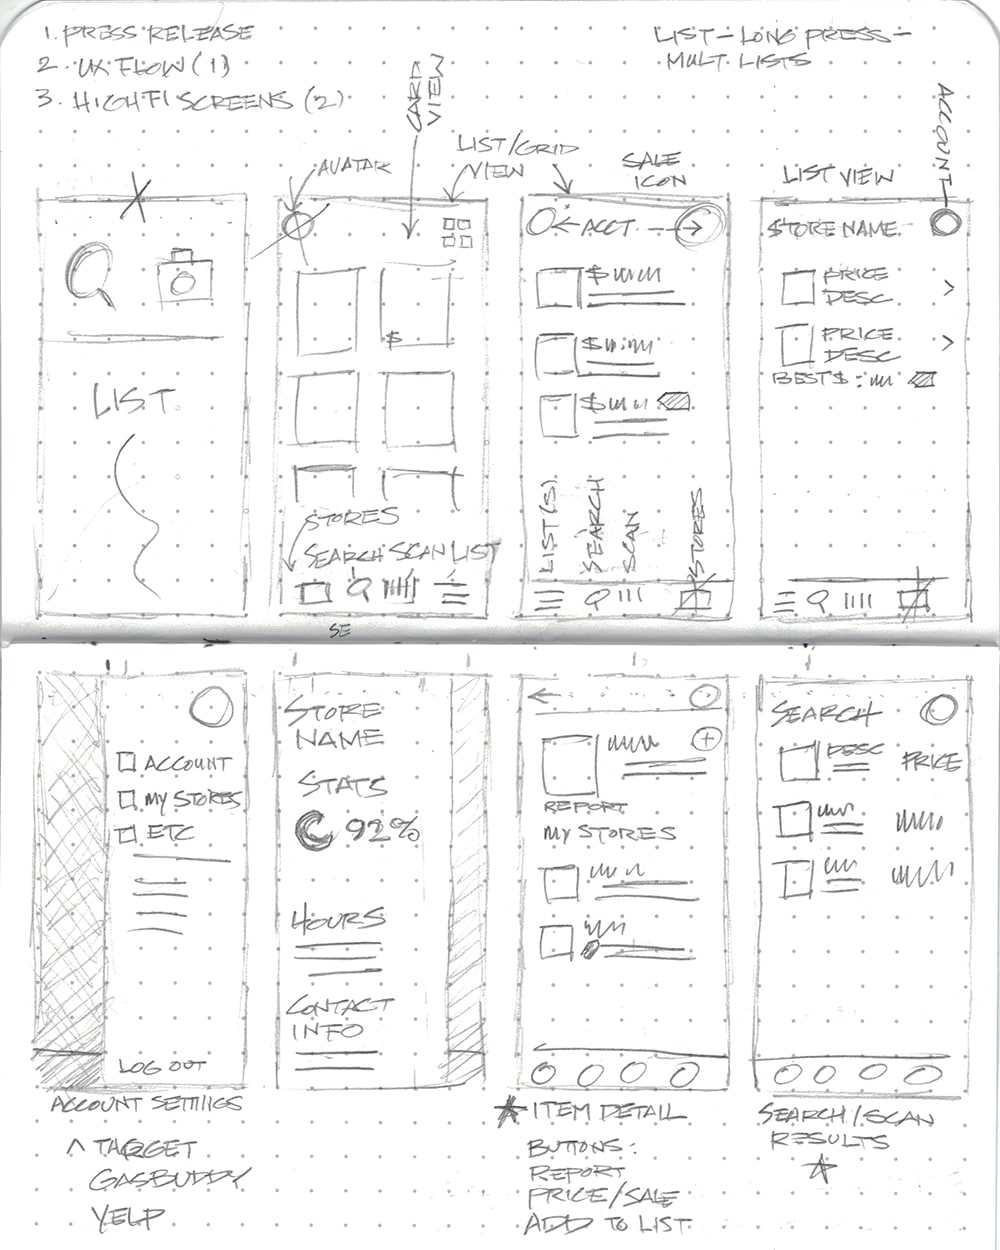 1. PRESS RELEASE
2. UX FLOW (1)
3. HIGH FI SCREENS (2)
LIST - LONG PRESS -
MULT. LISTS
CARD
VIEW
ACCOUNT
AVATAR
LIST/GRID
VIEW
SALE
ICON
LIST VIEW
LIST
$
STORES
SEARCH SCAN LIST
ACCT.
$
$
$
LIST(S)
SEARCH
SCAN
STORES
STORE NAME
PRICE
DESC
PRICE
DESC
BEST $:
SE
ACCOUNT
MY STORES
ETC
LOG OUT
ACCOUNT SETTINGS
^ TARGET
GASBUDDY
YELP
STORE
NAME
STATS
92%
HOURS
CONTACT
INFO
+
REPORT
MY STORES
ITEM DETAIL
BUTTONS:
REPORT
PRICE/SALE
ADD TO LIST
SEARCH
DESC
PRICE
SEARCH/SCAN
RESULTS